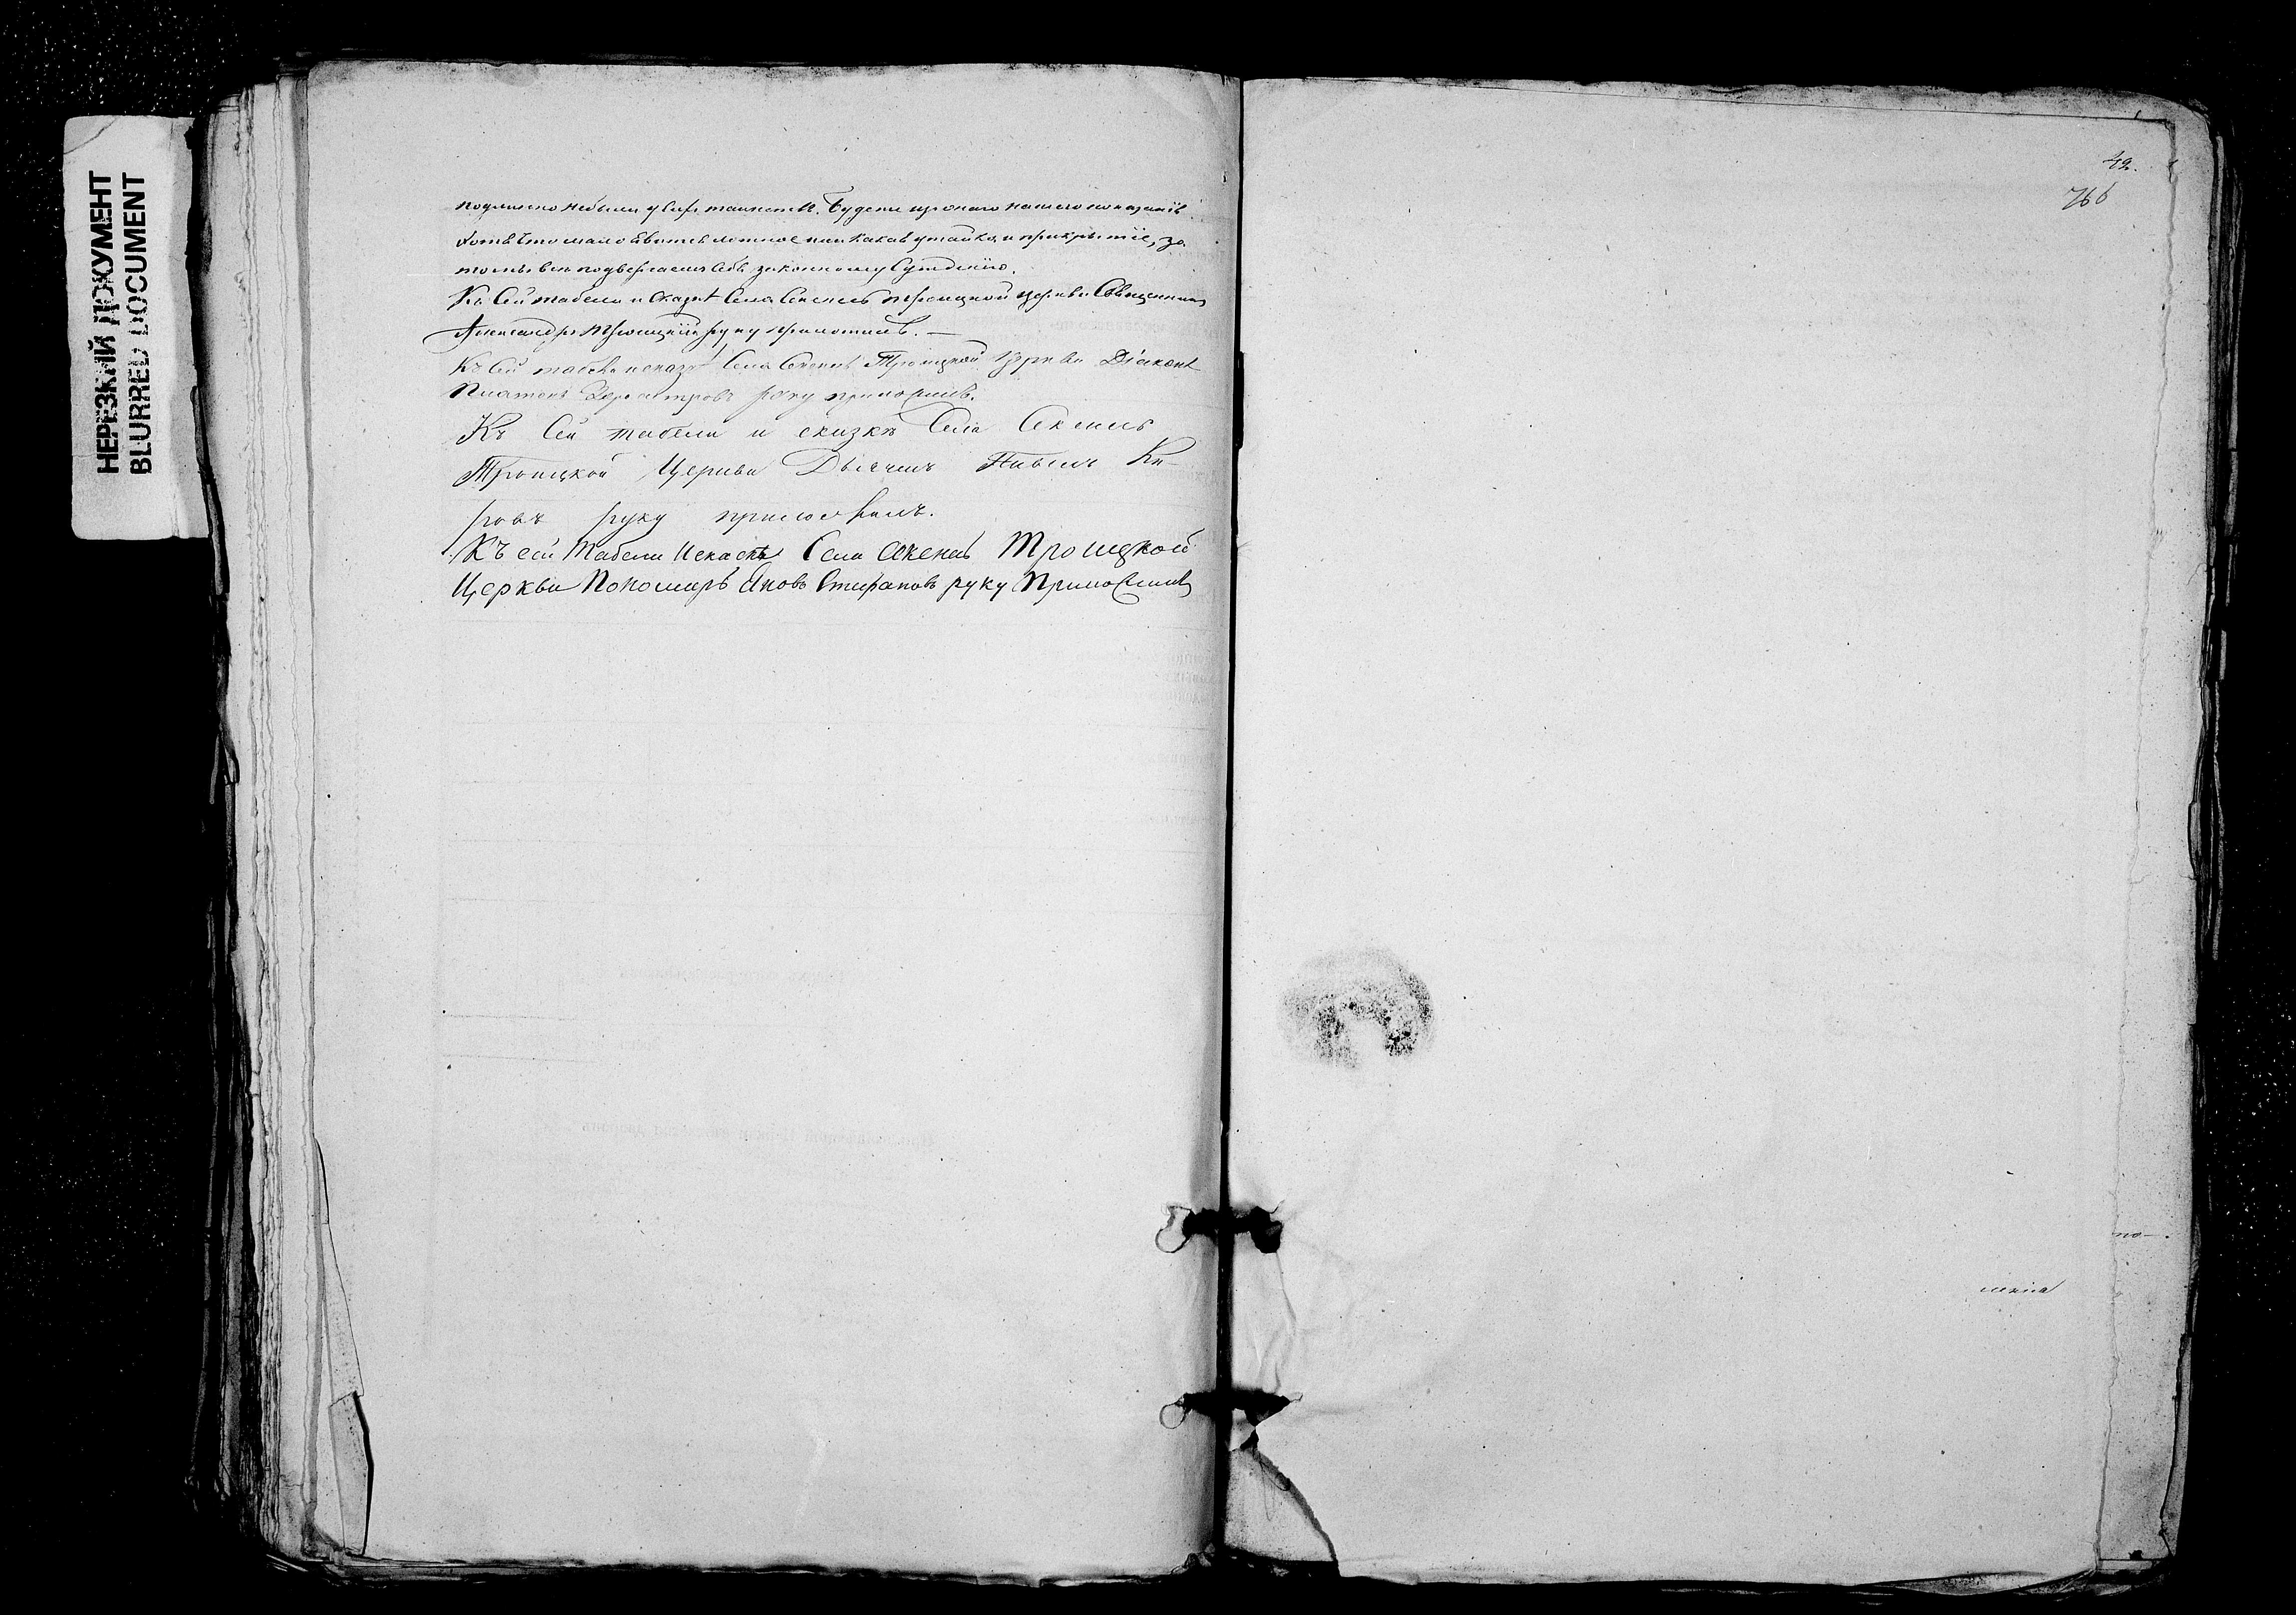 НЕРЕЗКИЙ ДОКУМЕНТ
BLURRED DOCUMENT
42.
766
подлинно небыли у Сих таинств. Буде же противо нашего показанія
хотя что мало явится ложное или какая утайка и прикрытіе, за
то мы все подвергаемъ себя законному Сужденію.
Къ Сей табели и сказкѣ Села Секень Троицкой церкви Священникъ
Александръ Троицкій руку приложилъ. —
Къ Сей табели и сказкѣ Села Секень Троицкой Церкви Діаконъ
Платонъ руку приложилъ.
Къ Сей табели и сказкѣ Села Секень
Троицкой Церкви Дьячекъ Ки-
ровъ руку приложилъ.
Къ сей Табели И скаскѣ Села Секень Троицкой
Церкви Пономарь Яковъ Стифановъ руку Приложилъ
по-